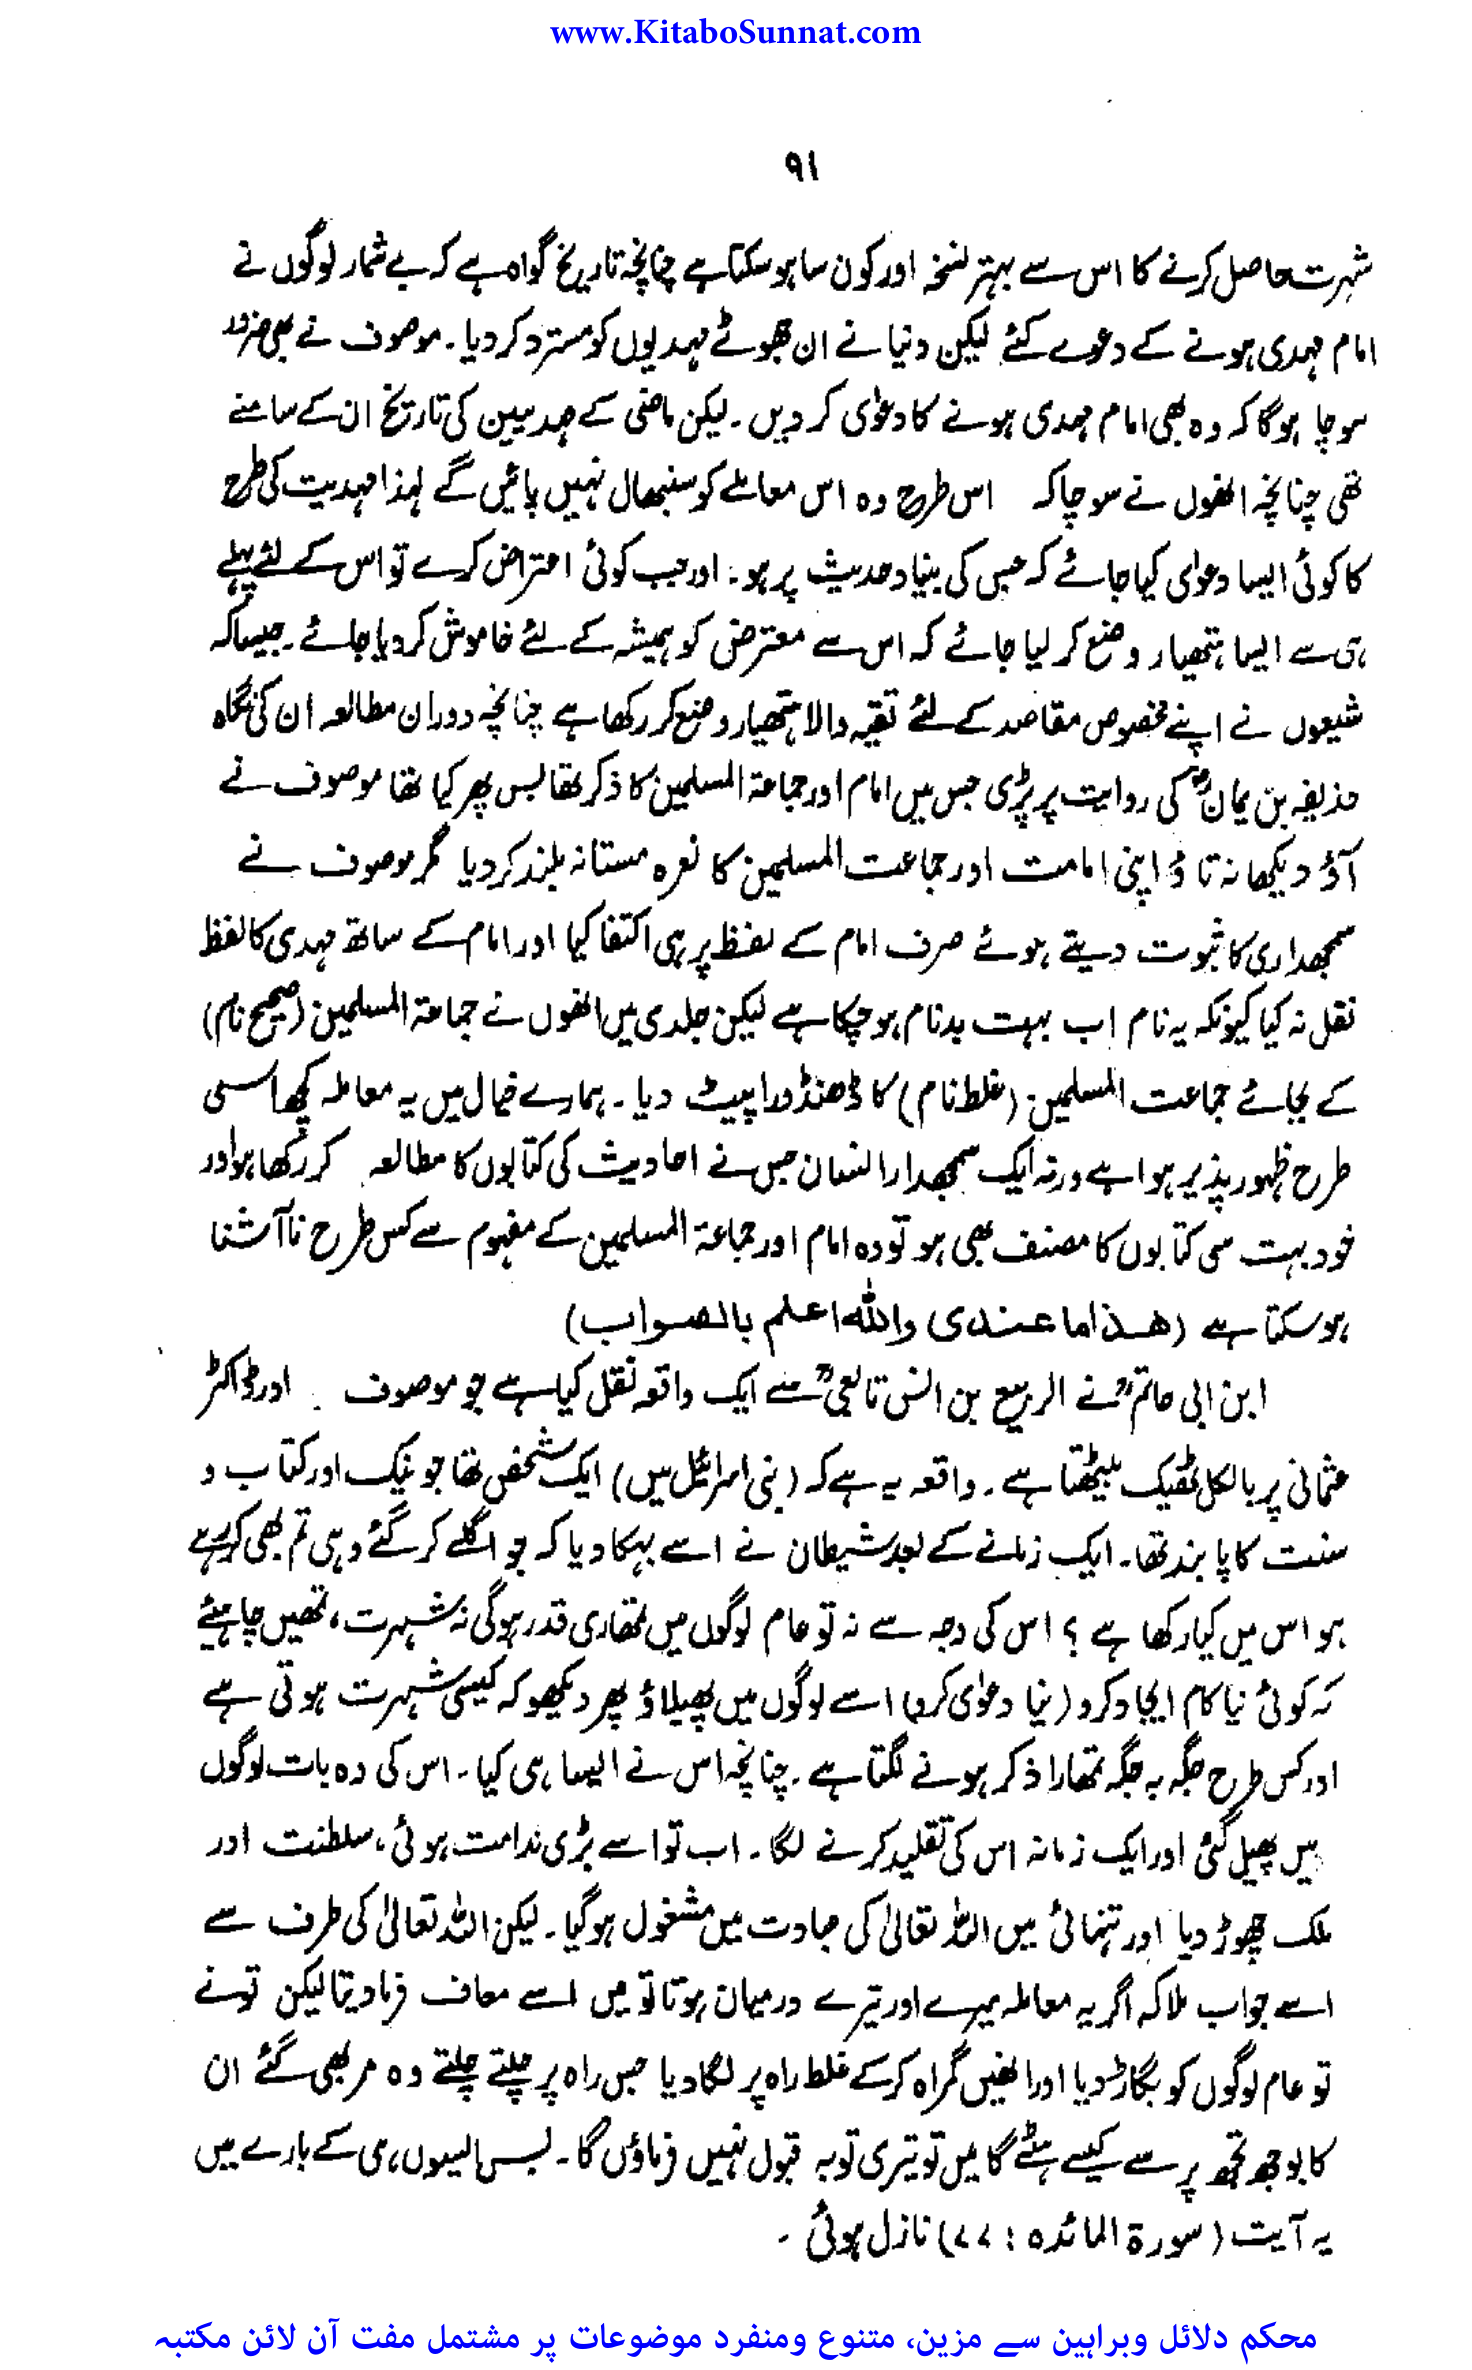 www.KitaboSunnat.com
۹۱
شہرت حاصل کرنے کا اس سے بہتر نسخہ اور کون سا ہو سکتا ہے چنانچہ تاریخ گواہ ہے کہ بے شمار لوگوں نے
امام مہدی ہونے کے دعوے کئے لیکن دنیا نے ان جھوٹے مہدیوں کو مسترد کر دیا۔ موصوف نے بھی ضرور
سوچا ہو گا کہ وہ بھی امام مہدی ہونے کا دعوٰی کر دیں۔ لیکن ماضی کے مہدیین کی تاریخ ان کے سامنے
تھی چنانچہ انھوں نے سوچا کہ اس طرح وہ اس معاملے کو سنبھال نہیں پائیں گے لہذا مہدیت کی طرح
کا کوئی ایسا دعوٰی کیا جائے کہ جس کی بنیاد حدیث پر ہو۔ اور جب کوئی اعتراض کرے تو اس کے لئے پہلے
ہی سے ایسا ہتھیار وضع کر لیا جائے کہ اس سے معترض کو ہمیشہ کے لئے خاموش کر دیا جائے۔ جیسا کہ
شیعوں نے اپنے مخصوص مقاصد کے لئے تقیہ والا ہتھیار وضع کر رکھا ہے چنانچہ دوران مطالعہ ان کی نگاہ
حذیفہ بن یمانؓ کی روایت پر پڑی جس میں امام اور جماعۃ المسلمین کا ذکر تھا بس پھر کیا تھا موصوف نے
آؤ دیکھا نہ تاؤ اپنی امامت اور جماعت المسلمین کا نعرہ مستانہ بلند کر دیا مگر موصوف نے
سمجھداری کا ثبوت دیتے ہوئے صرف امام کے لفظ پر ہی اکتفا کیا اور امام کے ساتھ مہدی کا لفظ
نقل نہ کیا کیونکہ یہ نام اب بہت بدنام ہو چکا ہے لیکن جلدی میں انھوں نے جماعۃ المسلمین (صحیح نام)
کے بجائے جماعت المسلمین (غلط نام) کا ڈھنڈورا پیٹ دیا۔ ہمارے خیال میں یہ معاملہ کچھ اسی
طرح ظہور پذیر ہوا ہے ورنہ ایک سمجھدار انسان جس نے احادیث کی کتابوں کا مطالعہ کر رکھا ہو اور
خود بہت سی کتابوں کا مصنف بھی ہو تو وہ امام اور جماعۃ المسلمین کے مفہوم سے کس طرح نا آشنا
ہو سکتا ہے (ھذا ما عندی واللہ اعلم بالصواب)
ابن ابی حاتمؒ نے الربیع بن انس تابعیؒ سے ایک واقعہ نقل کیا ہے جو موصوف اور ڈاکٹر
عثمانی پر بالکل ٹھیک بیٹھتا ہے۔ واقعہ یہ ہے کہ (بنی اسرائیل میں) ایک شخص تھا جو نیک اور کتاب و
سنت کا پابند تھا۔ ایک زمانے کے بعد شیطان نے اسے بہکا دیا کہ جو اگلے کر گئے وہی تم بھی کر رہے
ہو اس میں کیا رکھا ہے ؟ اس کی وجہ سے نہ تو عام لوگوں میں تمھاری قدر ہو گی نہ شہرت، تمھیں چاہیئے
کہ کوئی نیا کام ایجاد کرو (نیا دعوٰی کرو) اسے لوگوں میں پھیلاؤ پھر دیکھو کہ کیسی شہرت ہوتی ہے
اور کس طرح جگہ بہ جگہ تمھارا ذکر ہونے لگتا ہے۔ چنانچہ اس نے ایسا ہی کیا۔ اس کی وہ بات لوگوں
میں پھیل گئی اور ایک زمانہ اس کی تقلید کرنے لگا۔ اب تو اسے بڑی ندامت ہوئی، سلطنت اور
ملک چھوڑ دیا اور تنہائی میں اللہ تعالیٰ کی عبادت میں مشغول ہو گیا۔ لیکن اللہ تعالیٰ کی طرف سے
اسے جواب ملا کہ اگر یہ معاملہ میرے اور تیرے درمیان ہوتا تو میں اسے معاف فرما دیتا لیکن تونے
تو عام لوگوں کو بگاڑ دیا اور انھیں گمراہ کر کے غلط راہ پر لگا دیا جس راہ پر چلتے چلتے وہ مر بھی گئے ان
کا بوجھ تجھ پر سے کیسے ہٹے گا میں تو تیری توبہ قبول نہیں فرماؤں گا۔ بس ایسوں ہی کے بارے میں
یہ آیت (سورۃ المائدہ : ۷۷) نازل ہوئی۔
محکم دلائل وبراہین سے مزین، متنوع ومنفرد موضوعات پر مشتمل مفت آن لائن مکتبہ